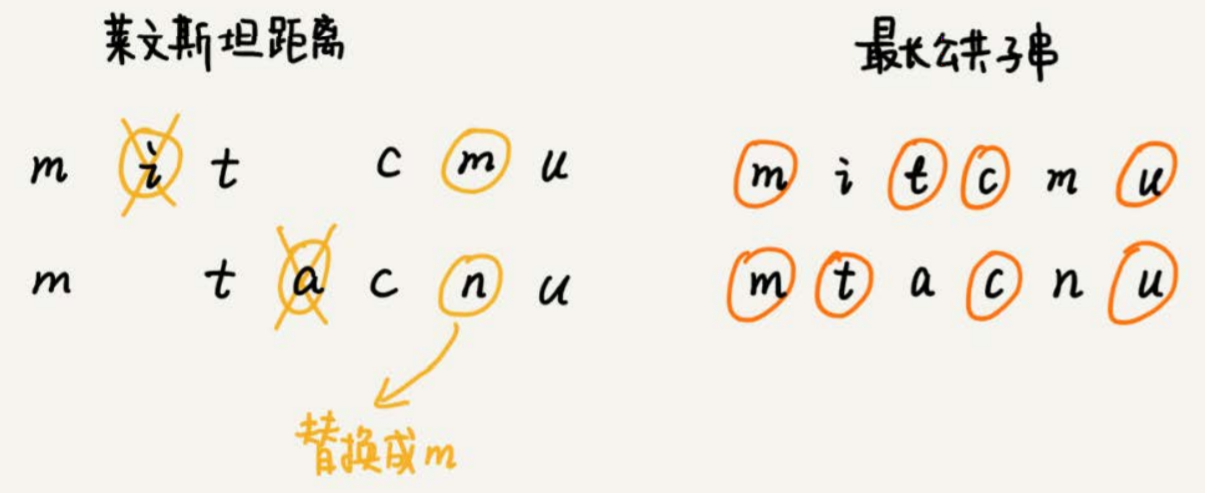 莱文斯坦距离
m i t c m u
m t a c n u
替换成m
最长公共子串
m i t c m u
m t a c n u